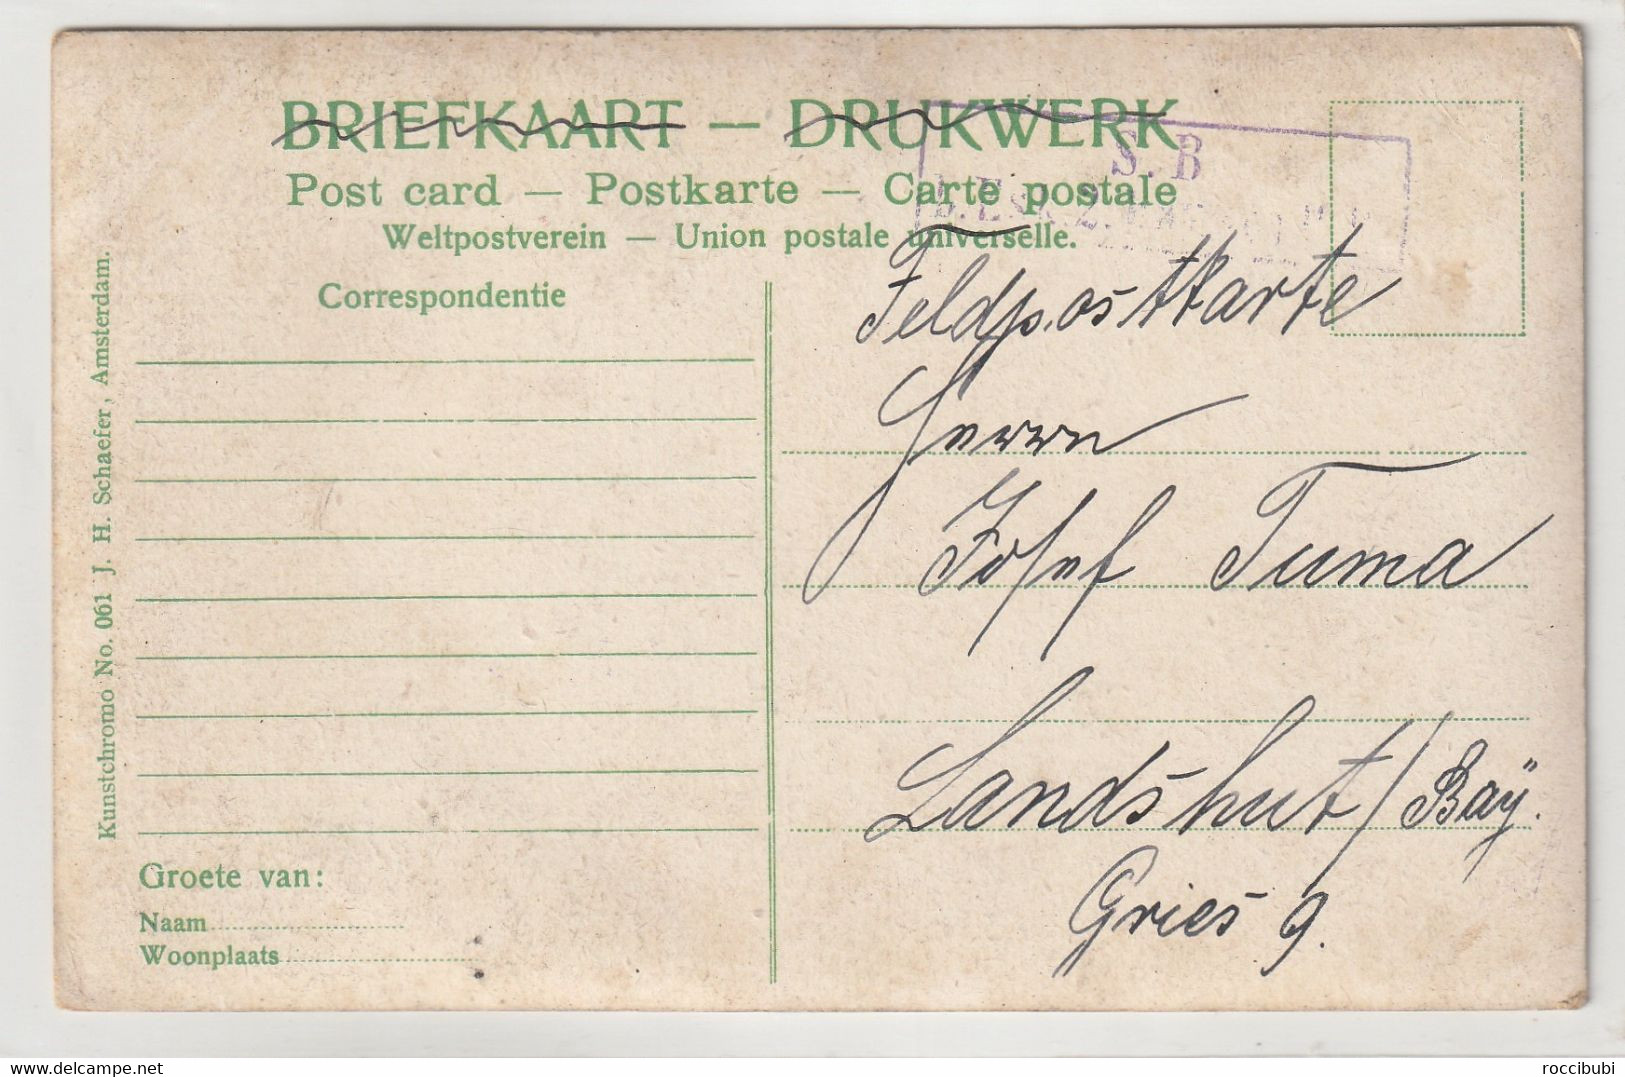 BRIEFKAART — DRUKWERK
Post card — Postkarte — Carte postale
Weltpostverein — Union postale universelle.
S. B
Correspondentie
Feldpostkarte
Herrn
Josef Tuma
Landshut / Baÿ.
Gries 9.
Groete van:
Naam
Woonplaats
Kunstchromo No. 061 J. H. Schaefer, Amsterdam.
delcampe.net
roccibubi